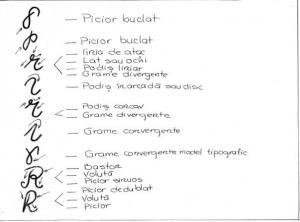 Picior buclat
Picior buclat
linia de atac
Lat sau ochi
Podiș liniar
Grame divergente
Podiș în arcadă sau disc
Podiș concav
Grame divergente
Grame convergente
Grame convergente model tipografic
Baston
Volută
Picior sinuos
Picior dedublat
Volută
Picior